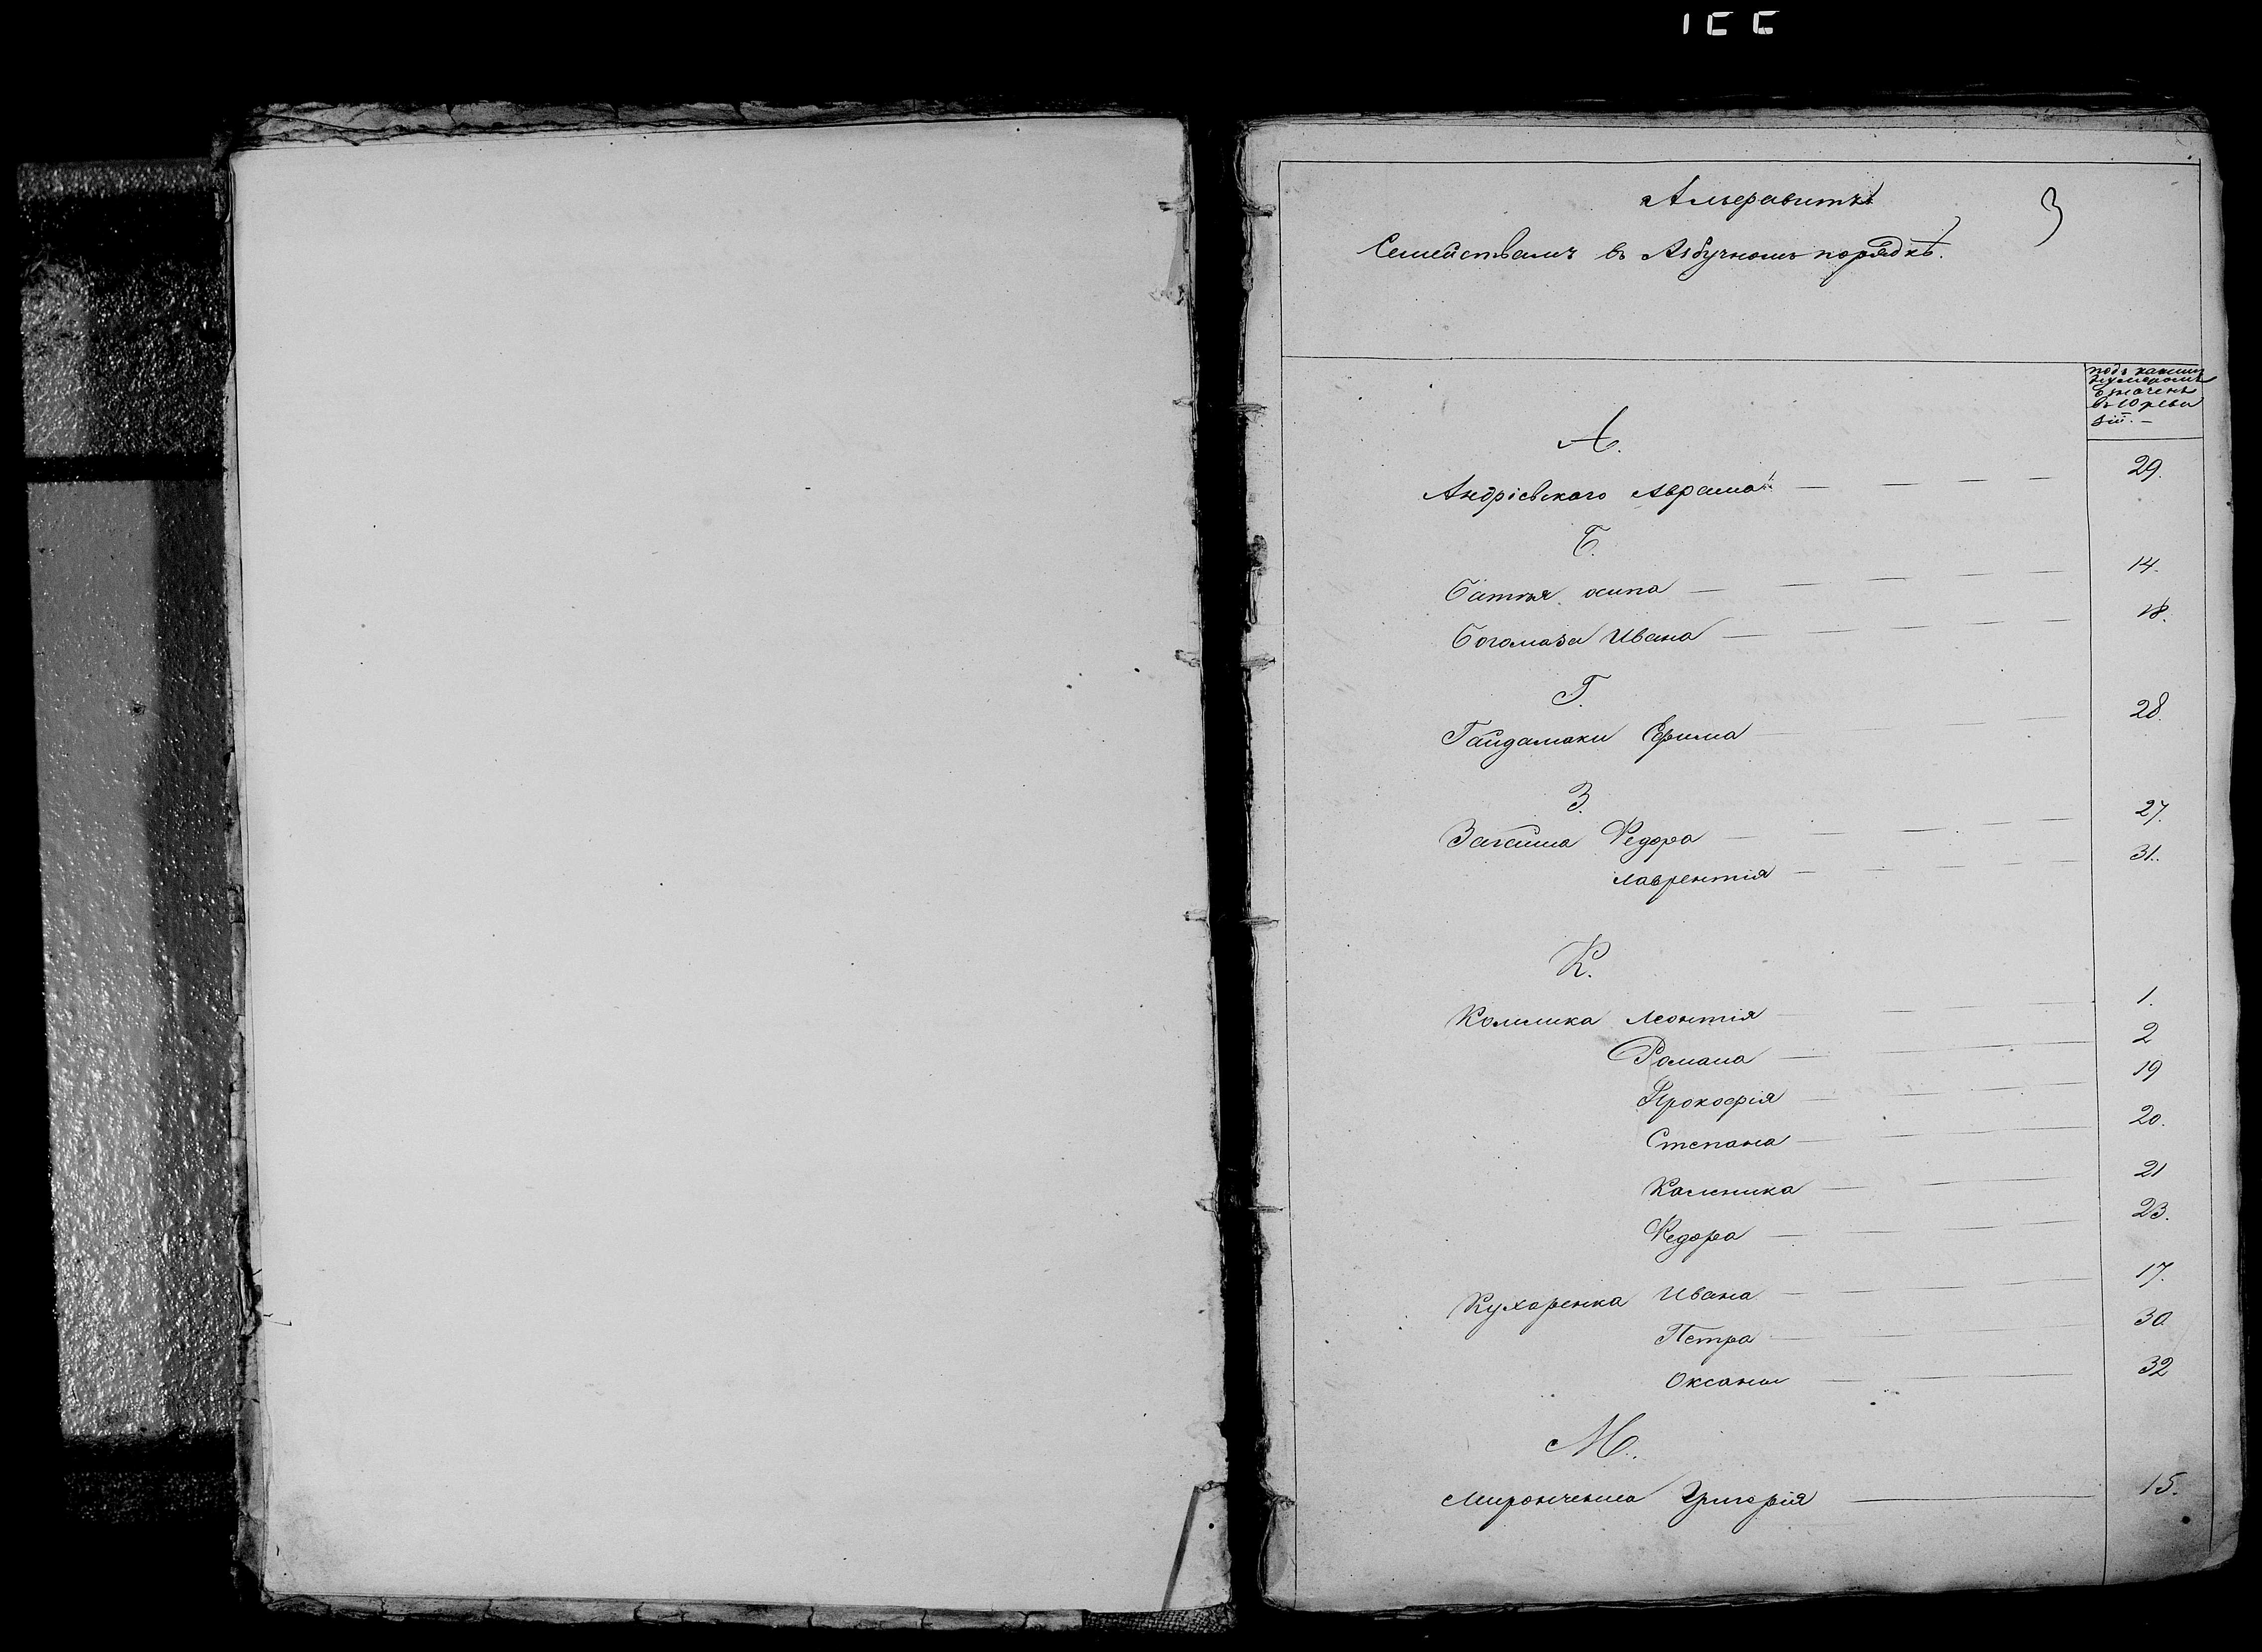 3
Алфавитъ
Семействамъ въ Азбучномъ порядкѣ.
подъ какимъ
нумеромъ
въ 10 реви
зіи. —
А.
Андріевского Аврама — 29.
Б.
Батия осипа — 14.
Богомаза Ивана — 18.
Г.
Гайдамаки Ефима — 28.
З.
Федора — 27.
Лаврентія — 31.
К.
Колмика Леонтія — 1.
Романа — 2
Прокофія — 19
Степана — 20.
Каленика — 21
Федора — 23.
Кухаренка Ивана — 17.
Петра — 30
Оксаны — 32
М.
Миронченка Григорія — 15.